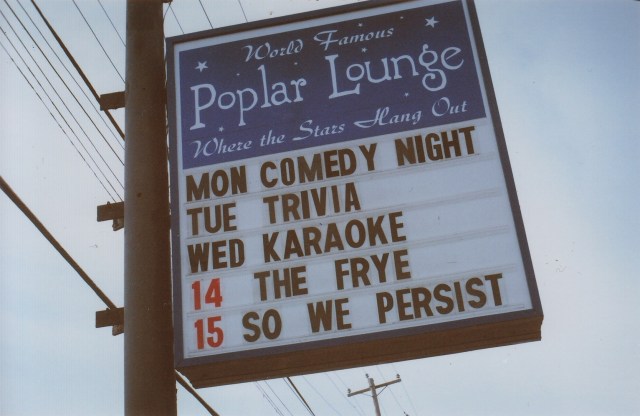 World Famous
Poplar Lounge
Where the Stars Hang Out
MON COMEDY NIGHT
TUE TRIVIA
WED KARAOKE
14 THE FRYE
15 SO WE PERSIST